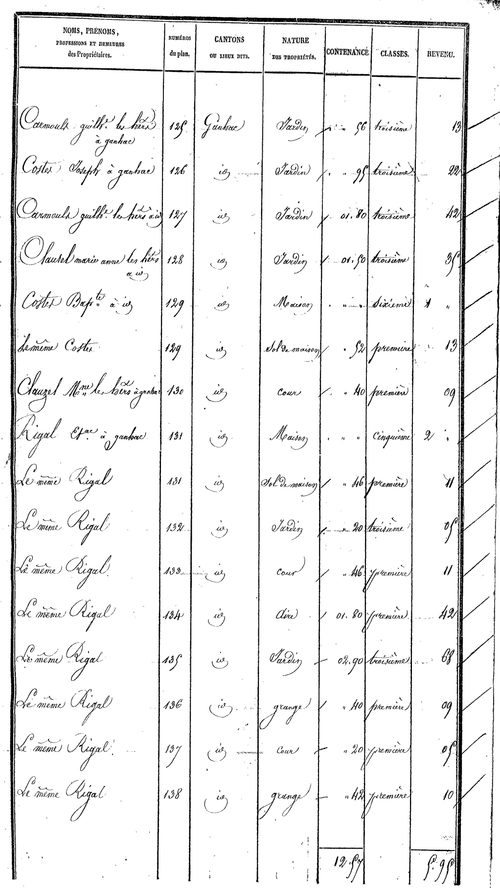 NOMS, PRENOMS, PROFESSIONS ET DEMEURES des Propriétaires. NUMÉROS du plan. CANTONS OU LIEUX DITS. NATURE DES PROPRIÉTÉS. CONTENANCE CLASSES. REVENU.
Carmouls guilh.e les hérs à ganhac 125 Ganhac Jardin " " 56 troisième 13
Costes Joseph à ganhac 126 id Jardin " 95 troisième 22
Carmouls guilh.e les hérs à id 127 id Jardin 01.80 troisième 42
Clauzel marie anne les hérs à id 128 id Jardin 01.50 troisième 35
Costes Bap.te à id 129 id Maison " " sixième 1 "
Le même Costes 129 id Sol de maison " 52 première 13
Clauzel M.ne les hérs à ganhac 130 id cour " 40 première 09
Rigal Et.ne à ganhac 131 id Maison " " cinquième 2 "
Le même Rigal 131 id Sol de maison " 46 première 11
Le même Rigal 132 id Jardin " 20 troisième 05
Le même Rigal 133 id cour " 46 première 11
Le même Rigal 134 id aire 01.80 première 42
Le même Rigal 135 id Jardin 02.90 troisième 68
Le même Rigal 136 id grange " 40 première 09
Le même Rigal 137 id cour " 20 première 05
Le même Rigal 138 id grange " 42 première 10
12.57 5.95